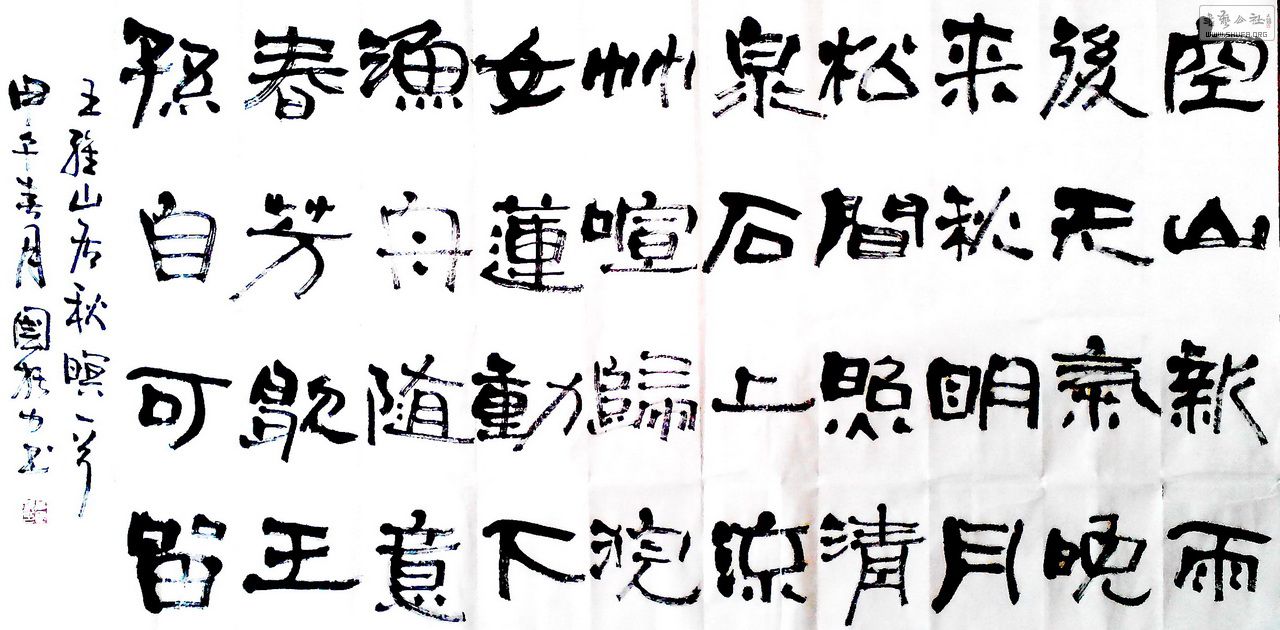 空山新雨
後天氣晚
来秋明月
松間照清
泉石上流
竹喧歸浣
女蓮動下
漁舟随意
春芳歇王
孫自可留
王維山居秋暝一首
甲午春月國书
书艺公社
WWW.SHUFA.ORG